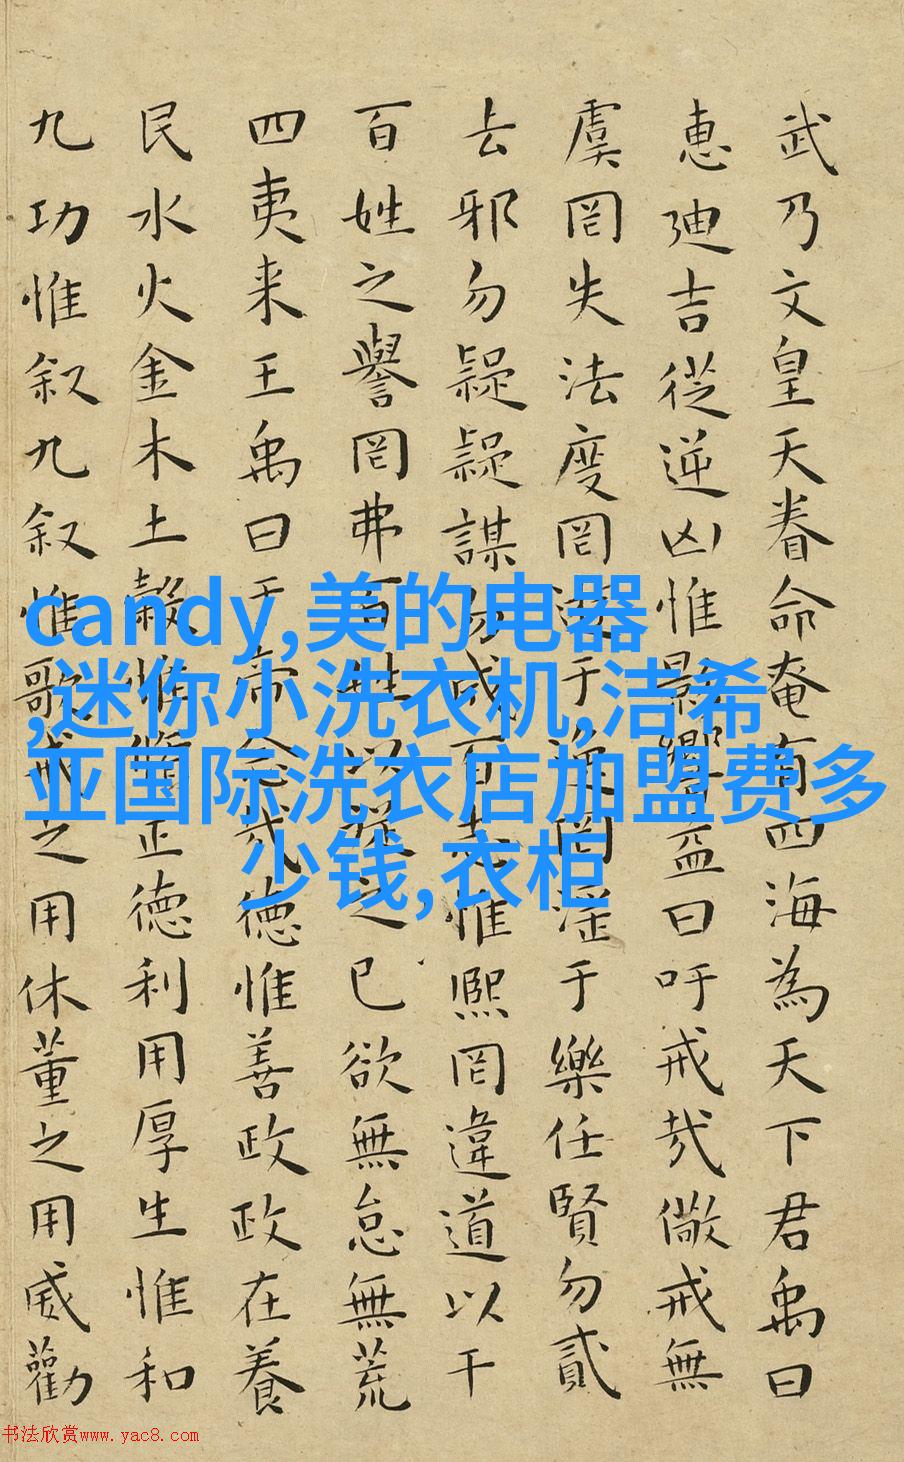 武乃文皇天眷命奄有四海為天下君禹曰
惠廸吉從逆凶惟影響益曰吁戒哉儆戒無
虞罔失法度罔遊于逸罔淫于樂任賢勿貳
去邪勿疑疑謀勿成百志惟熙罔違道以干
百姓之譽罔弗百姓以從之已欲無怠無荒
四夷来王禹曰于帝念哉德惟善政政在養
民水火金木土穀惟修正德利用厚生惟和
九功惟叙九叙惟歌戒之用休董之用威勸
candy,美的电器
,迷你小洗衣机,洁希
亚国际洗衣店加盟费多
少钱,衣柜
书法欣赏www.yac8.com